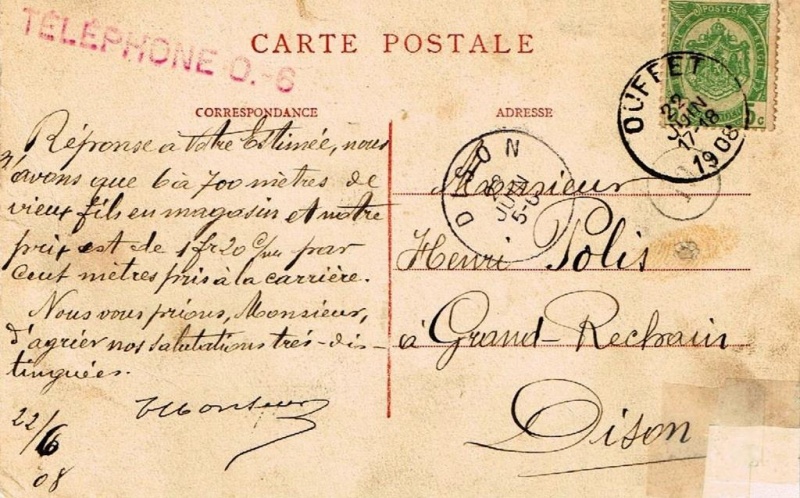 TÉLÉPHONE O.-6
CARTE POSTALE
CORRESPONDANCE
Réponse à Votre Estimée, nous
n'avons que 6 à 700 mètres de
vieux fils en magasin et notre
prix est de 1 fr 20 par
cent mètres pris à la carrière.
Nous vous prions, Monsieur,
d'agréer nos salutations très-dis-
tinguées.
22/6
08
ADRESSE
POSTES
OUFFET
22
JUIN
17-18
1908
DISON
JUIN
Monsieur
Henri Polis
à Grand-Rechain
Dison